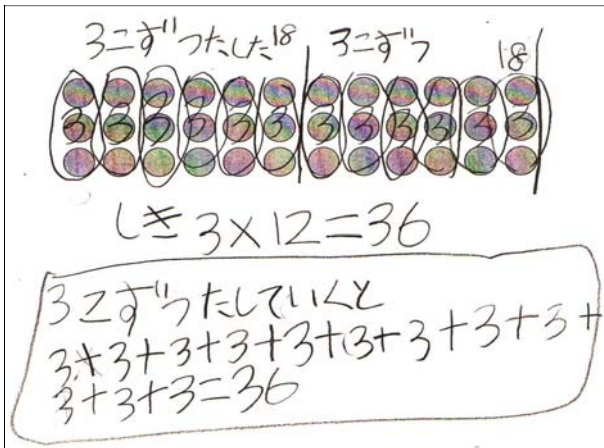 3こずつたした18 3こずつ 18
3 3 3 3 3 3 3 3 3 3 3 3
しき 3×12=36
3こずつたしていくと
3+3+3+3+3+3+3+3+3+
3+3+3=36